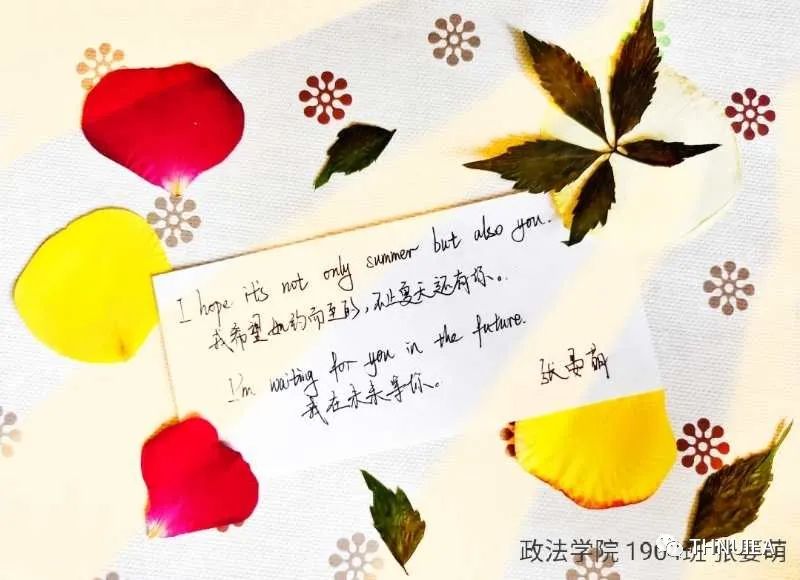 I hope it's not only summer but also you.
我希望如约而至的，不止夏天还有你。
I'm waiting for you in the future.
我在未来等你。
张晏萌
政法学院 190 班 张晏萌
THNUIEA